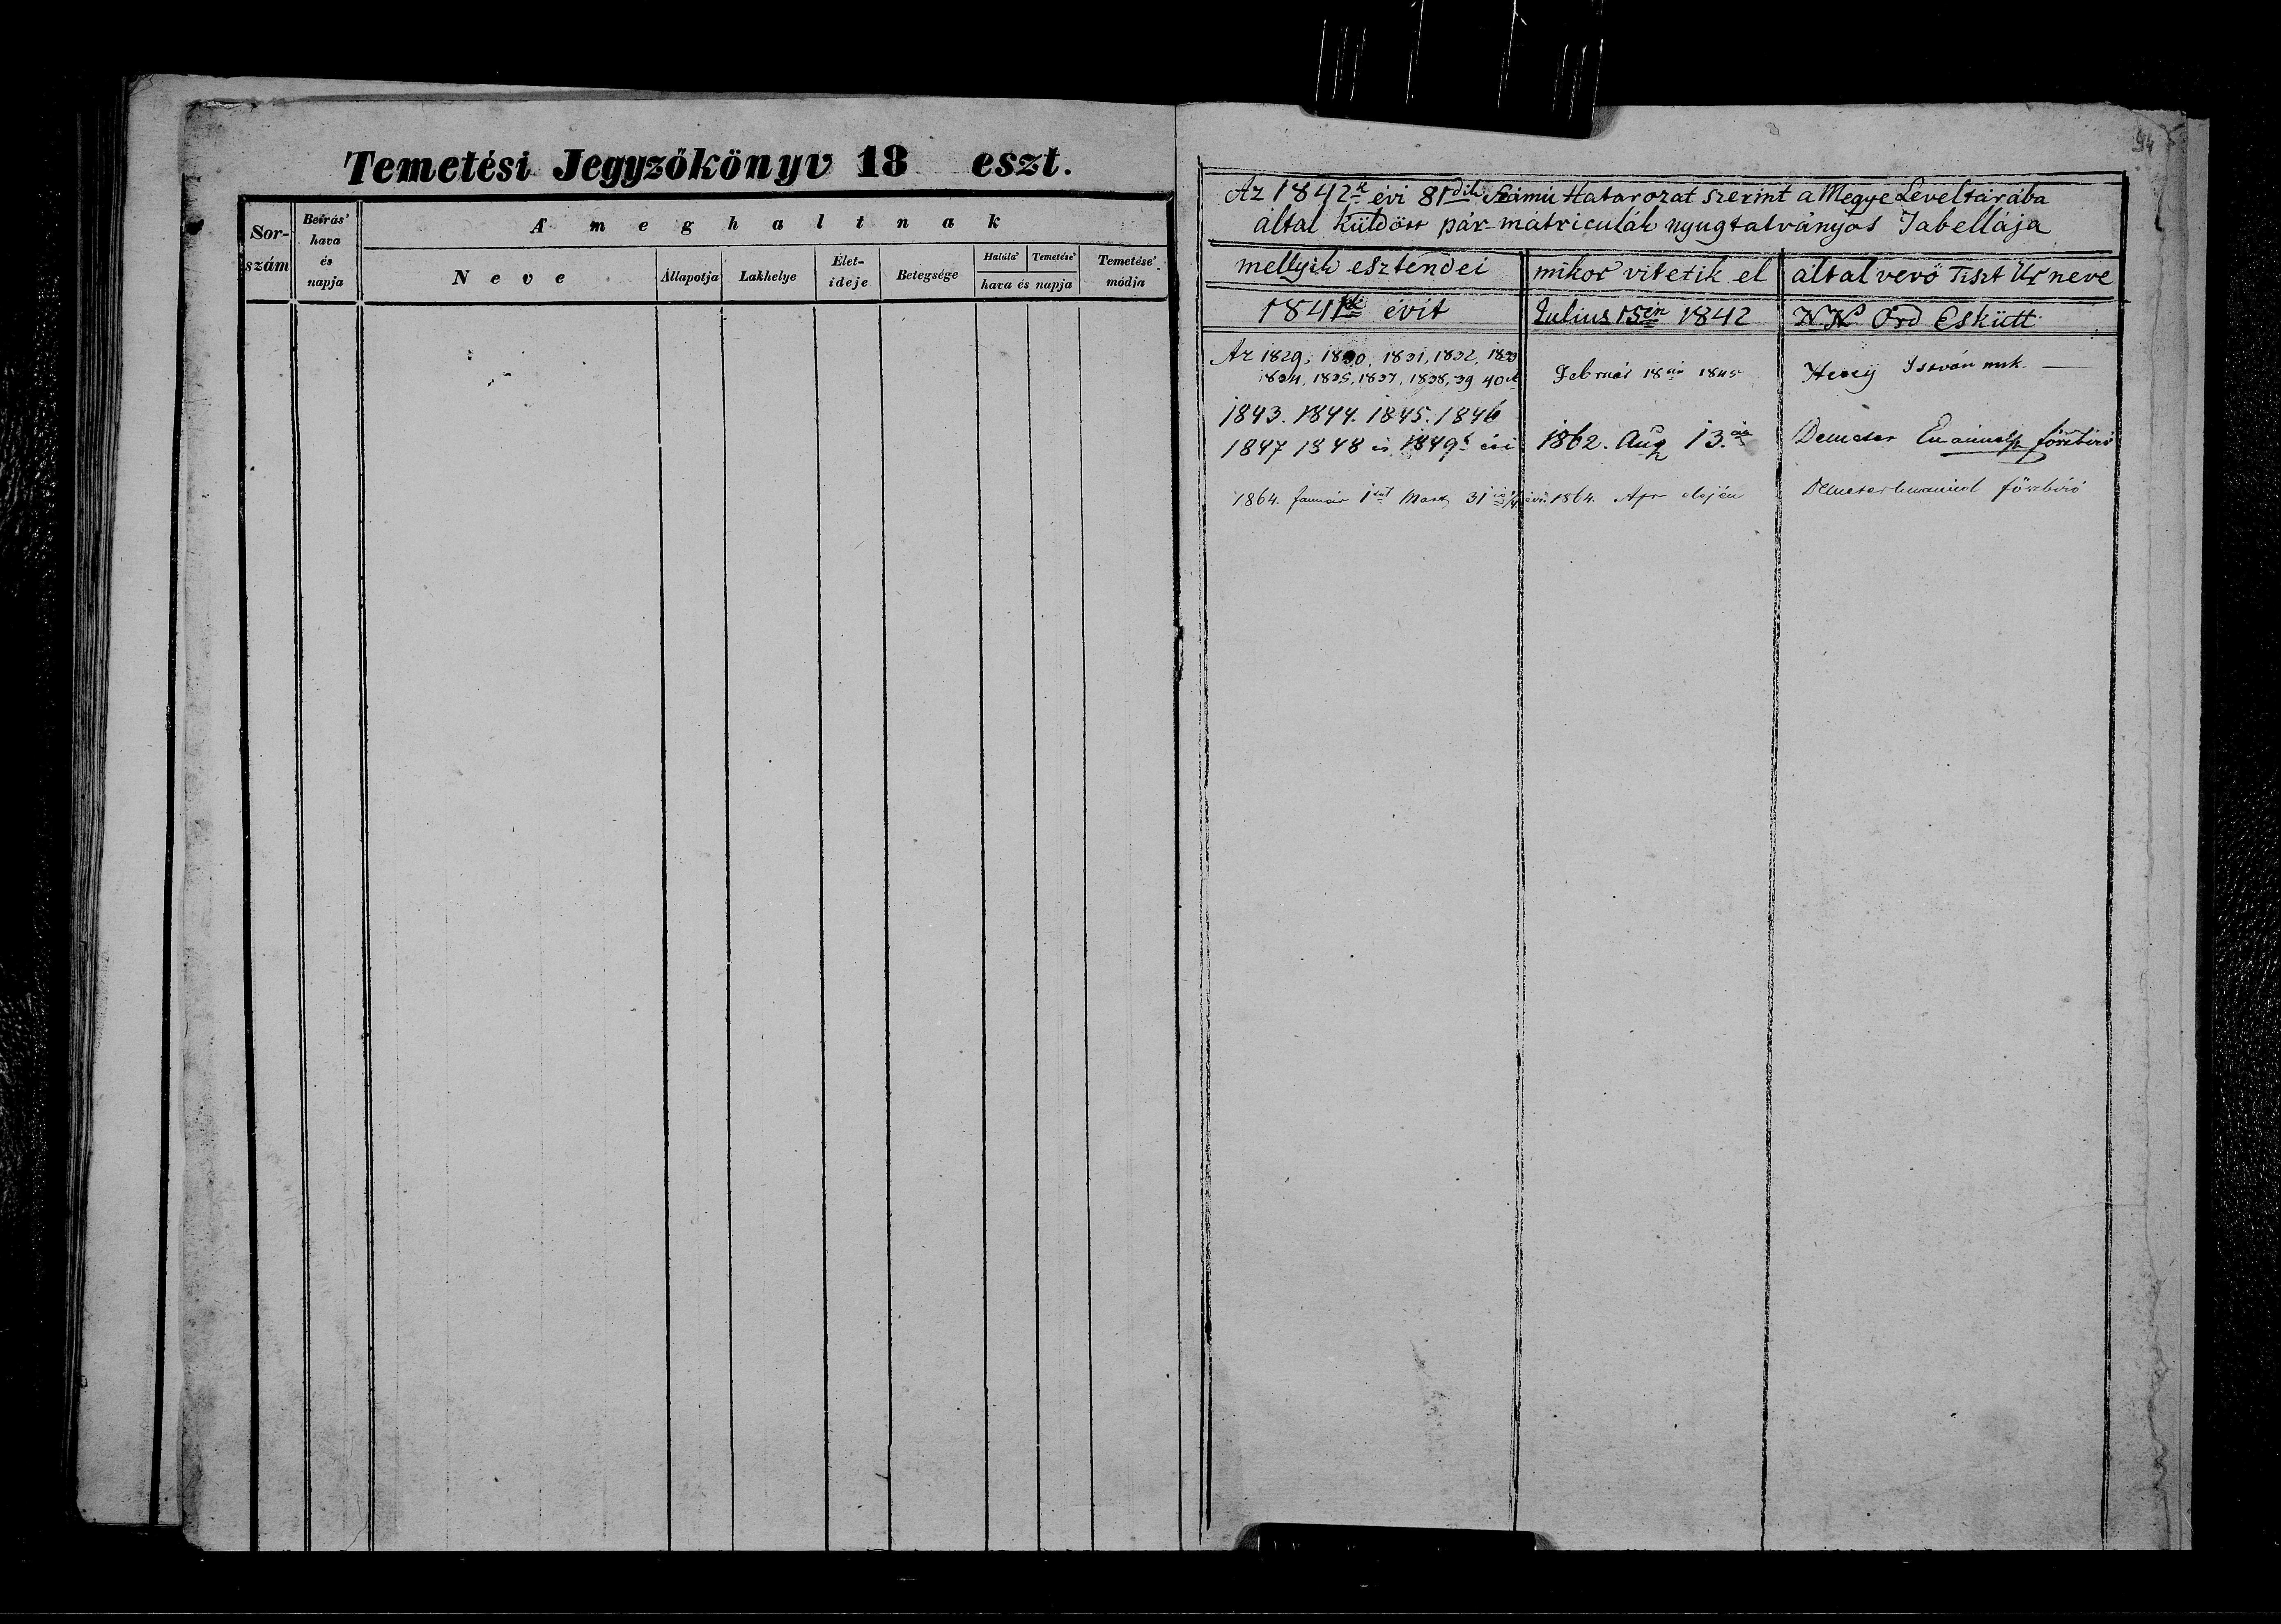 Temetési Jegyzőkönyv 18 eszt.
Sor-
szám
Beirás'
hava
és
napja
A' meghaltnak
Neve
Állapotja
Lakhelye
Élet-
ideje
Betegsége
Halála'
Temetése'
hava és napja
Temetése'
módja
94
Az 1842k évi 81dik Számú Hatarozat szerint a Megye Leveltárába
által küldött pár-mátriculák nyugtatványos Tabellája
mellyik esztendei
mikor vitetik el
által vevő Tiszt Úr neve
1841k évit
Julius 15én 1842
Ord Eskütt
Az 1829, 1830, 1831, 1832, 1833
1834, 1835, 1837, 1838, 39 40
Február 18án 1845
István mk.
1843. 1844. 1845. 1846
1847 1848 és 1849k évi
1862. Aug 13.án
Demeter Emánuel főszbiró
1864. Január 1ső Mart 31
1864. Apr elején
Demeter Emanuel főszbiró